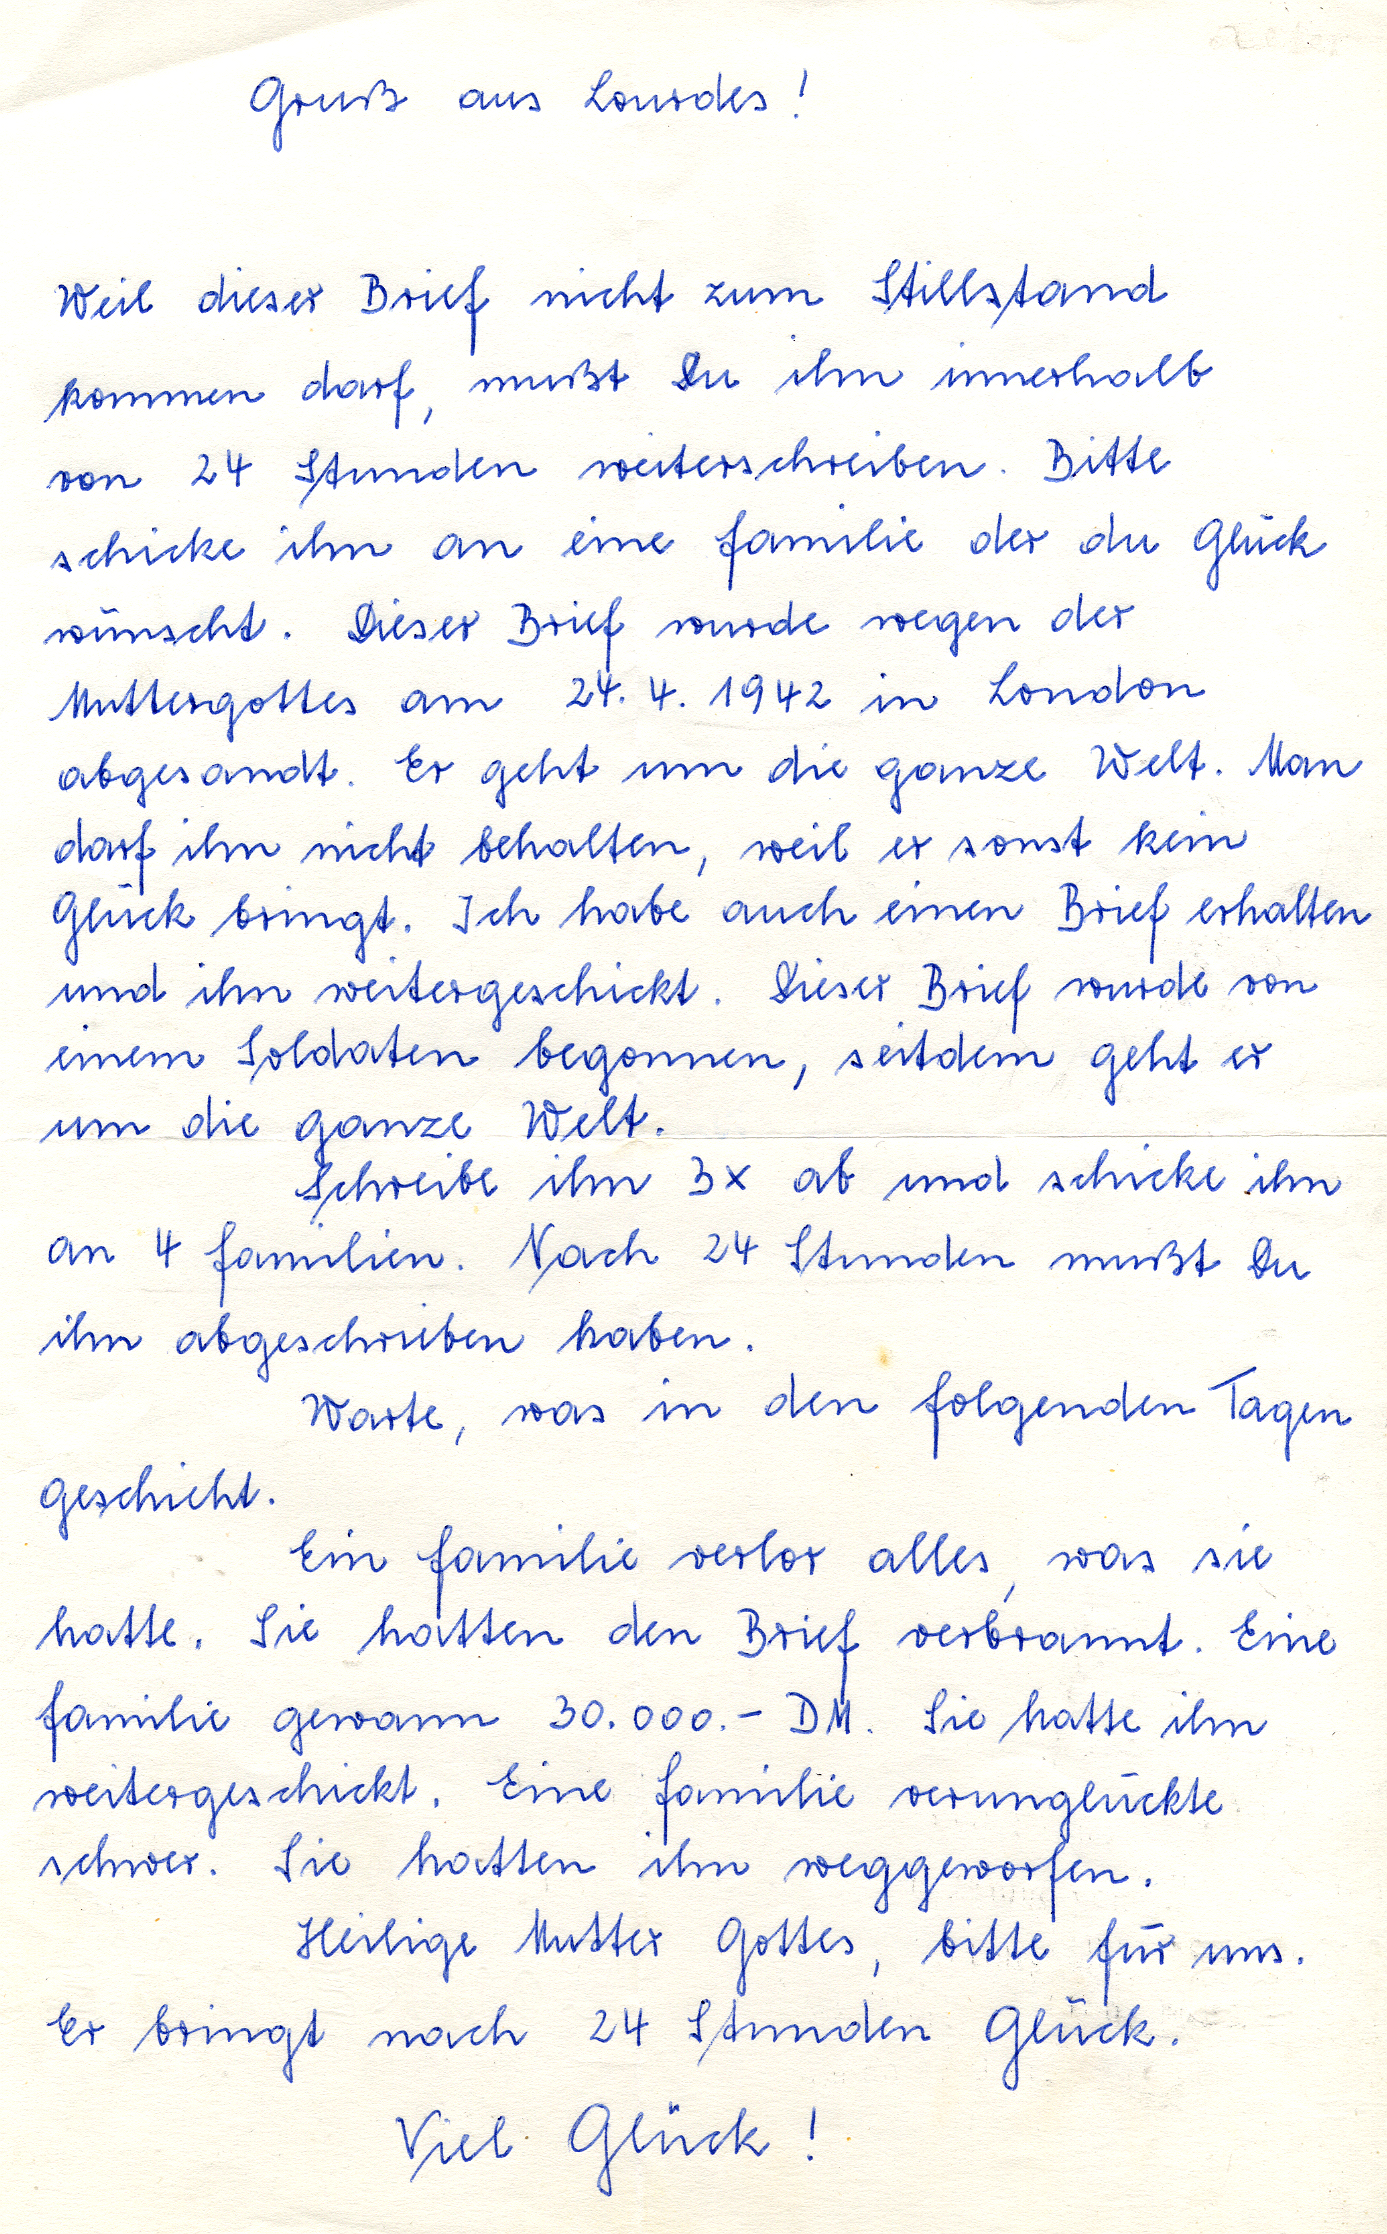 Gruß aus Lourdes!
Weil dieser Brief nicht zum Stillstand
kommen darf, mußt Du ihn innerhalb
von 24 Stunden weiterschreiben. Bitte
schicke ihn an eine Familie der du Glück
wünscht. Dieser Brief wurde wegen der
Muttergottes am 24. 4. 1942 in London
abgesandt. Er geht um die ganze Welt. Man
darf ihn nicht behalten, weil er sonst kein
Glück bringt. Ich habe auch einen Brief erhalten
und ihn weitergeschickt. Dieser Brief wurde von
einem Soldaten begonnen, seitdem geht er
um die ganze Welt.
Schreibe ihn 3x ab und schicke ihn
an 4 Familien. Nach 24 Stunden mußt Du
ihn abgeschrieben haben.
Warte, was in den folgenden Tagen
geschieht.
Ein Familie verlor alles, was sie
hatte. Sie hatten den Brief verbrannt. Eine
Familie gewann 30.000.- DM. Sie hatte ihn
weitergeschickt. Eine Familie verunglückte
schwer. Sie hatten ihn weggeworfen.
Heilige Mutter Gottes, bitte für uns.
Er bringt nach 24 Stunden Glück.
Viel Glück!